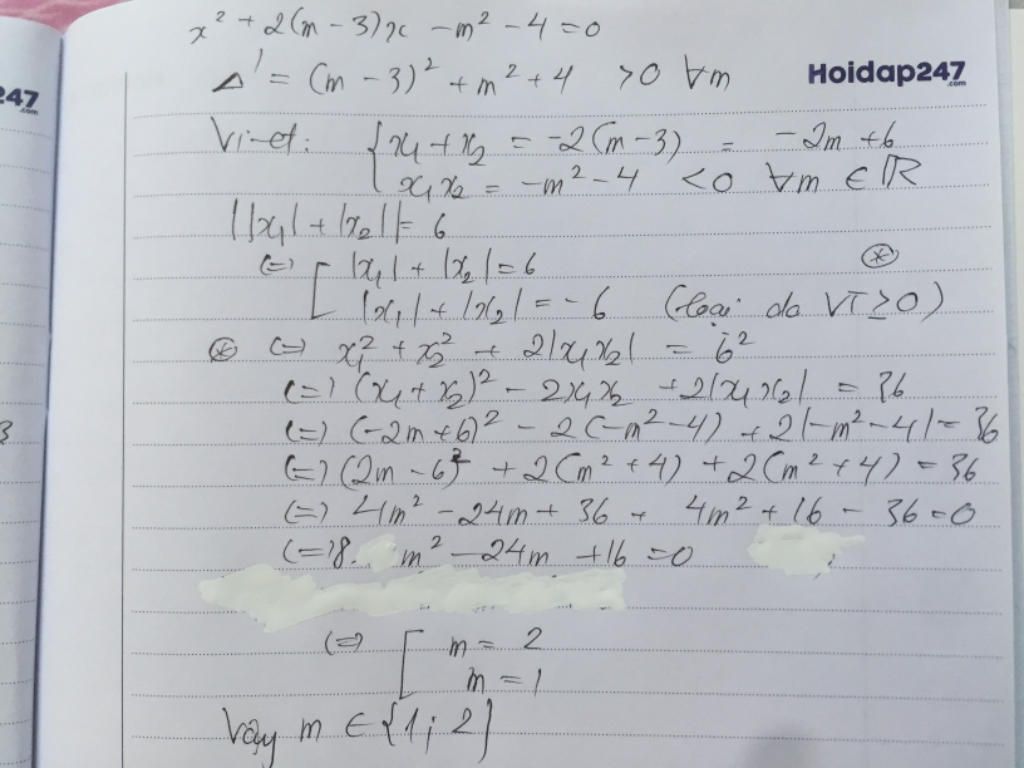 x² + 2(m - 3)x - m² - 4 = 0
Δ' = (m - 3)² + m² + 4 > 0 ∀m
Hoidap247
.com
247
.com
Vi-et: { x₁ + x₂ = -2(m - 3) = -2m + 6
x₁x₂ = -m² - 4 < 0 ∀m ∈ ℝ
||x₁| + |x₂|| = 6
(=) [ |x₁| + |x₂| = 6 (*)
|x₁| + |x₂| = -6 (loại do VT ≥ 0)
(*) (=) x₁² + x₂² + 2|x₁x₂| = 6²
(=) (x₁ + x₂)² - 2x₁x₂ + 2|x₁x₂| = 36
(=) (-2m + 6)² - 2(-m² - 4) + 2|-m² - 4| = 36
(=) (2m - 6)² + 2(m² + 4) + 2(m² + 4) = 36
(=) 4m² - 24m + 36 + 4m² + 16 - 36 = 0
(=) 8 m² - 24m + 16 = 0
(=) [ m = 2
m = 1
Vậy m ∈ {1; 2}
3